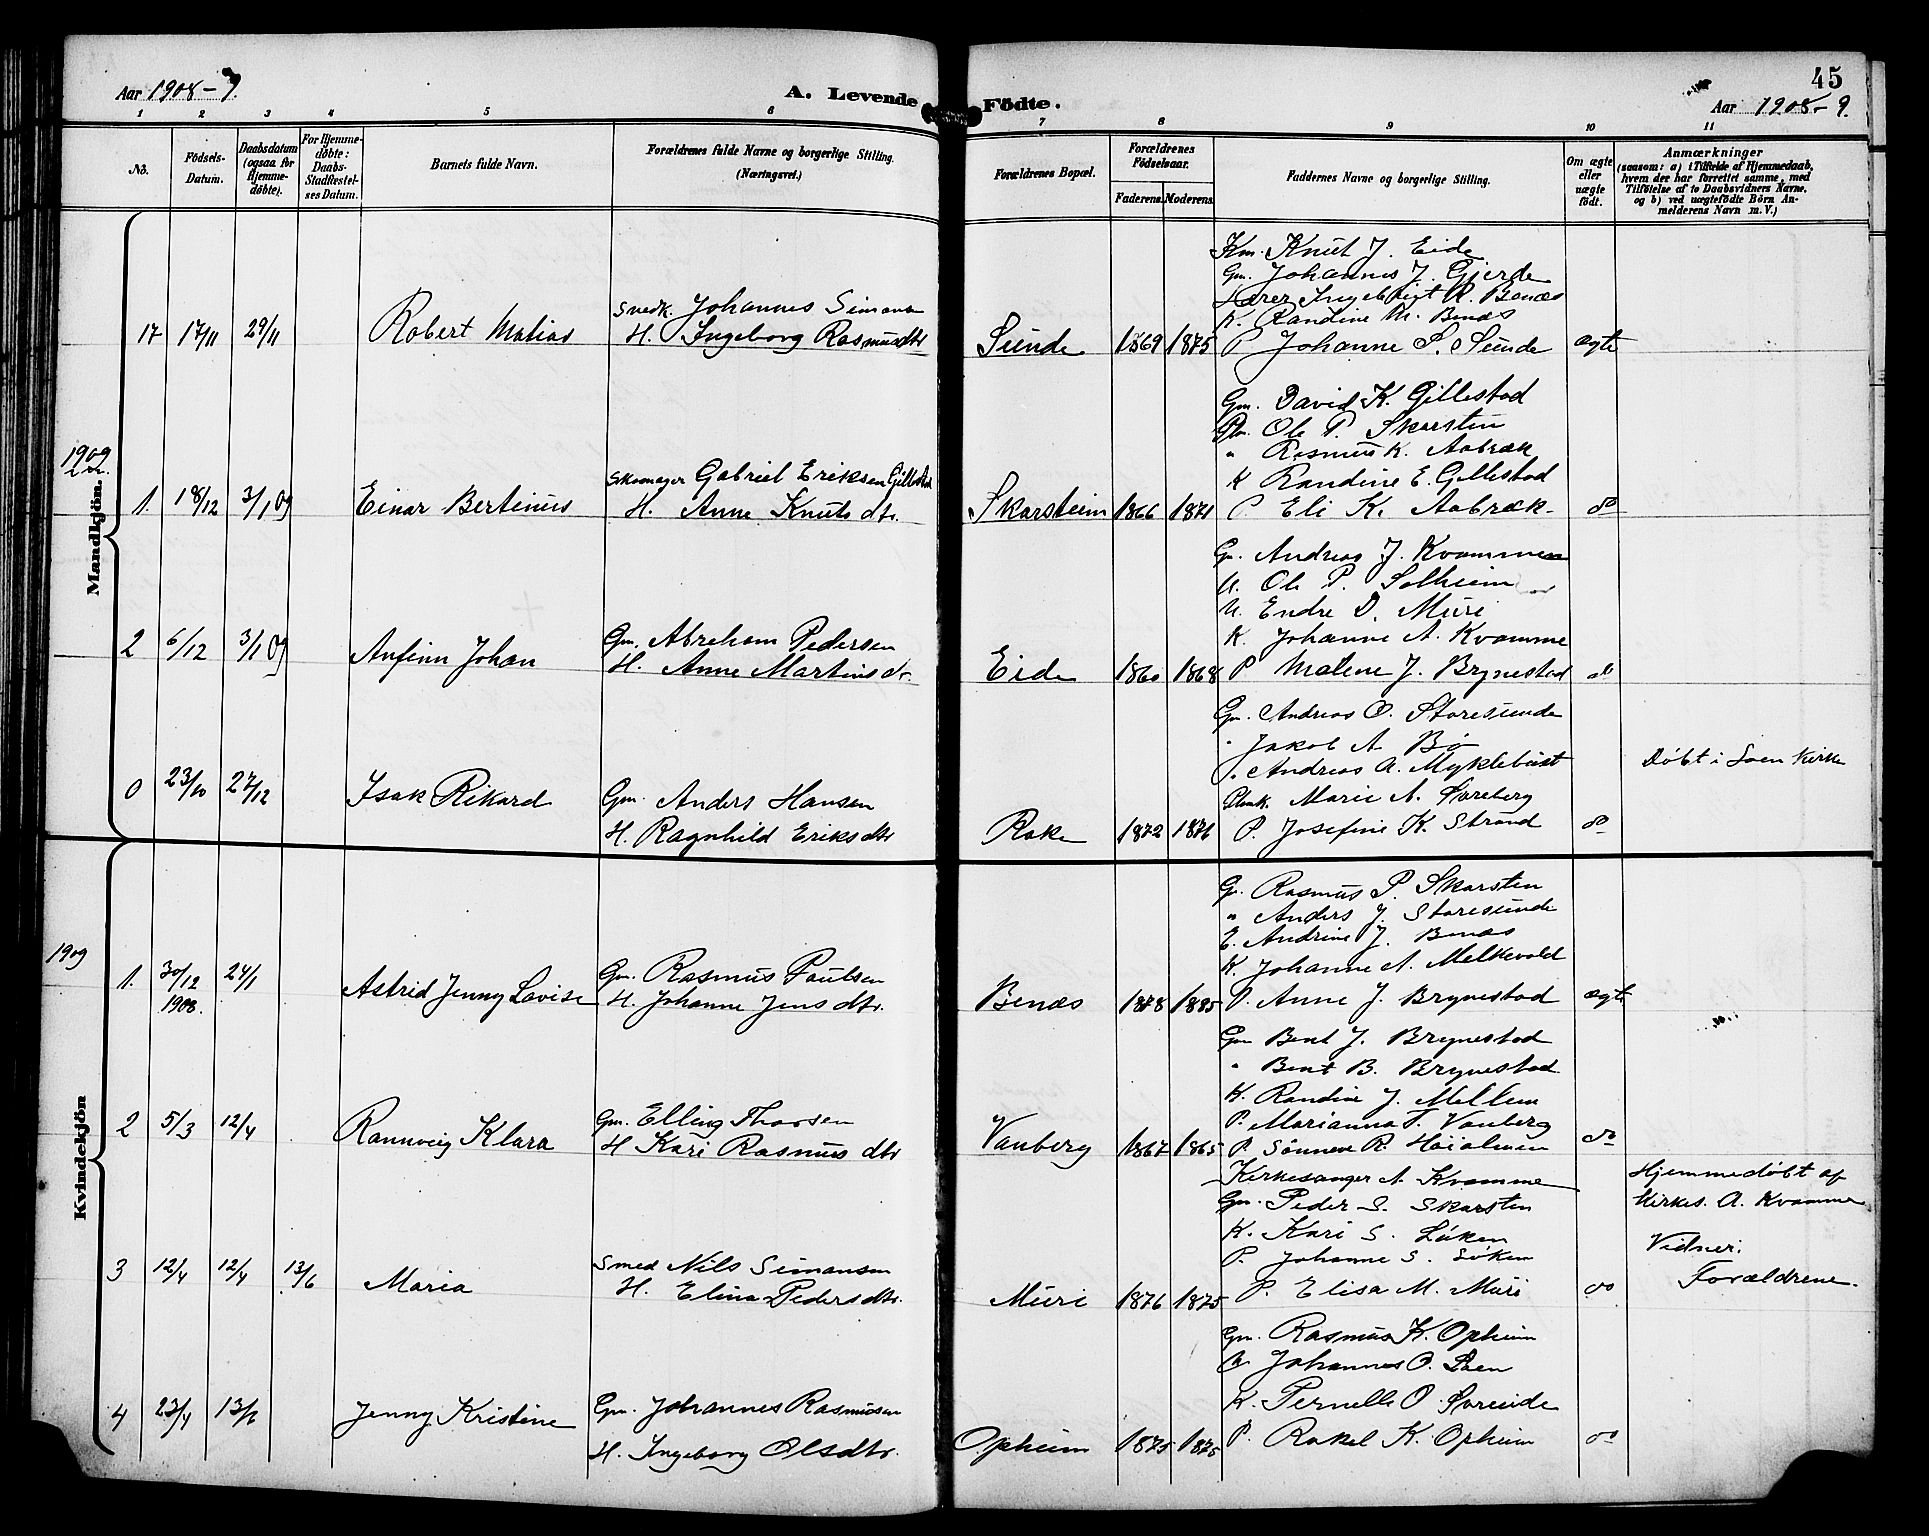 Aar 1908-9.
A. Levende Födte.
45
Aar 1908-9.
1 2 3 4 5 6 7 8 9 10 11
No.
Födsels-Datum.
Daabsdatum (ogsaa for Hjemmedöbte).
For Hjemmedöbte: Daabs-Stadfestelses Datum.
Barnets fulde Navn.
Forældrenes fulde Navne og borgerlige Stilling. (Næringsvei.)
Forældrenes Bopæl.
Forældrenes Födselsaar.
Faderens. Moderens.
Faddernes Navne og borgerlige Stilling.
Om ægte eller uægte födt.
Anmærkninger
(saasom: a) i Tilfælde af Hjemmedaab,
hvem der har forrettet samme, med
Tilföielse af to Daabsvidners Navne,
og b) ved uægtefödte Börn An-
melderens Navn m. V.)
Mandkjön.
Km. Knut J. Eide
Gm. Johannes J. Gjerde
Lærer Ingebrigt R. Benæs
K. Randine M. Benæs
Snedk. Johannes Simons
17 17/11 29/11 Robert Matias H. Ingeborg Rasmusdtr Sunde 1869 1875 P Johanne S. Sunde ægte
Gm. David K. Gillestad
Ole P. Skarsten
" Rasmus K. Aabræk
K Randine E. Gillestad
1909
Skomager Gabriel Eriksen Gillestad
1. 18/12 3/1 09 Einar Bertinus H. Anne Knuts dtr. Skarsteim 1866 1871 P. Eli K. Aabræk do
Gm. Andreas J. Kvamme
U. Ole P. Solheim
U. Endre D. Muri
K. Johanne A. Kvamme
Gm. Abraham Pedersen
2 6/12 3/1 09 Anfinn Johan H. Anne Martinsdr Eide 1860 1868 P Malene J. Brynestad do
Gm. Andreas O. Storesunde
" Jakob A Bø
Andreas A. Myklebust
Marie A. Særeberg
Døbt i Loen Kirke
0 23/10 27/12 Isak Rikard Gm. Anders Hansen
H. Ragnhild Eriksdtr Rake 1872 1871 P. Josefine K. Strand do
Kvindekjön
Gm. Rasmus P. Skarsten
" Anders J. Storesunde
E. Andrine J. Benæs
K. Johanne A. Melkevold
1909
Gm. Rasmus Paulsen
1. 30/12 1908. 24/1 Astrid Jenny Lovise H. Johanne Jensdtr. Benæs 1878 1885 P. Anne J. Brynestad ægte
Gm Bent J. Brynestad
" Bent B. Brynestad
K. Randine J. Mellem
P. Marianna T. Vanberg
Gm. Elling Thorsen
2 5/3 12/4 Rannveig Klara H Kari Rasmusdtr Vanberg 1867 1865 P. Sönneve R. Höialmen do
Kirkesanger A. Kvamme
Gm. Peder S. Skarsten
K. Kari S. Löken
P. Johanne S. Löken
Hjemmedøbt af
Kirkes. A. Kvamme
Vidner:
Forældrene.
Smed Nils Simonsen
3 12/4 12/4 13/6 Maria H. Elina Pedersdtr. Muri 1876 1875 P. Elisa M. Muri do
Gm. Rasmus K. Opheim
Johannes O. Loen
K. Pernelle O. Loreide
Gm. Johannes Rasmussen
4 23/4 13/6 Jenny Kristine H. Ingeborg Olsdtr. Opheim 1875 1875 P. Rakel K. Opheim do